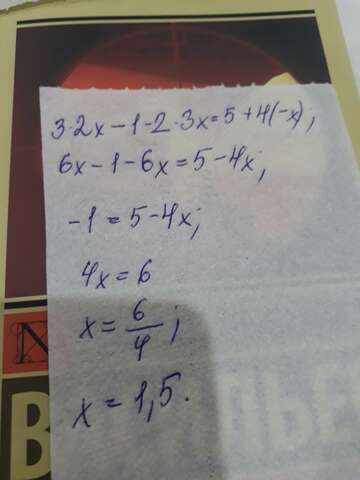 3·2x-1-2·3x=5+4(-x);
6x-1-6x=5-4x;
-1=5-4x;
4x=6
x=6/4;
x=1,5.
N
В